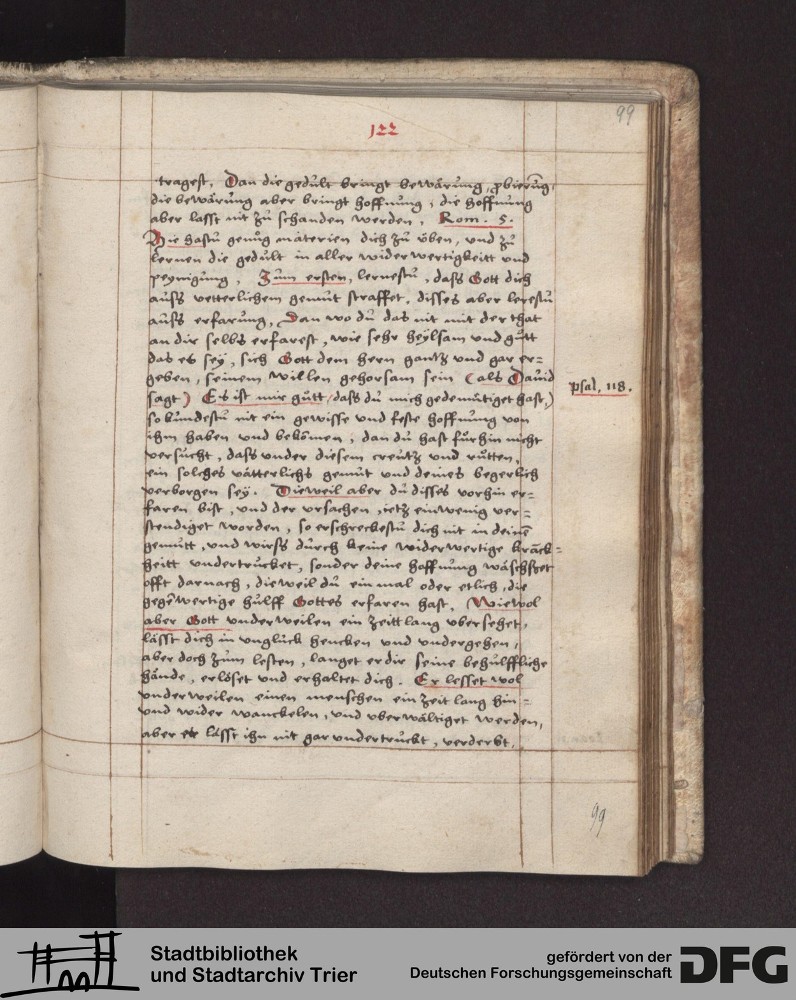 99
122
tragest. Dan die gedult bringt bewärung, probierūg,
die bewärung aber bringt hoffnung, die hoffnung
aber lasst nit zu schanden werden. Rom. 5.
Hie hastu genůg materien dich zů üben, und zů
lernen die gedult in aller widerwertigkeitt und
peynigung. Zum ersten, lernestu, dass Gott dich
auss vetterlichem gemůt straffet. disses aber lerestu
auss erfarung, Dan wo dů das nit mit der that
an dir selbs erfarest, wie sehr heylsam und gůtt
das es sey, sich Gott dem hern gantz und gar er=
geben, seinem willen gehorsam sein (als Dauid
sagt) Es ist mir gůtt, dass dů mich gedemütiget hast,)
psal. 118.
so kundestu nit ein gewisse und feste hoffnung von
ihm haben und bekōmen, dan dů hast fürhin nicht
versucht, dass under diesem creutz und růtten,
ein solches vätterlichs gemüt und deines begerlich
verborgen sey. Dieweil aber dů disses vorhin er=
faren bist, und der ursachen, ietz einwenig ver=
stendiget worden, so erschreckestu dich nit in deinē
gemůtt, und wirss durch keine widerwertige kranck=
heitt undertrucket, sonder deine hoffnung wäschset
offt darnach, dieweil dů ein mal oder etlich, die
gegēwertige hülff Gottes erfaren hast. Wiewol
aber Gott underweilen ein zeitt lang übersehet,
lässt dich in unglück hencken und undergehen,
aber doch zům lesten, langet er dir seine behülffliche
hände, erlöset und erhaltet dich. Er lesset wol
underweilen einen menschen ein zeit lang hin=
und wider wanckelen, und überwältiget werden,
aber er lässt ihn nit gar undertruckt, verderbt,
99
Stadtbibliothek
und Stadtarchiv Trier
gefördert von der
Deutschen Forschungsgemeinschaft
DFG